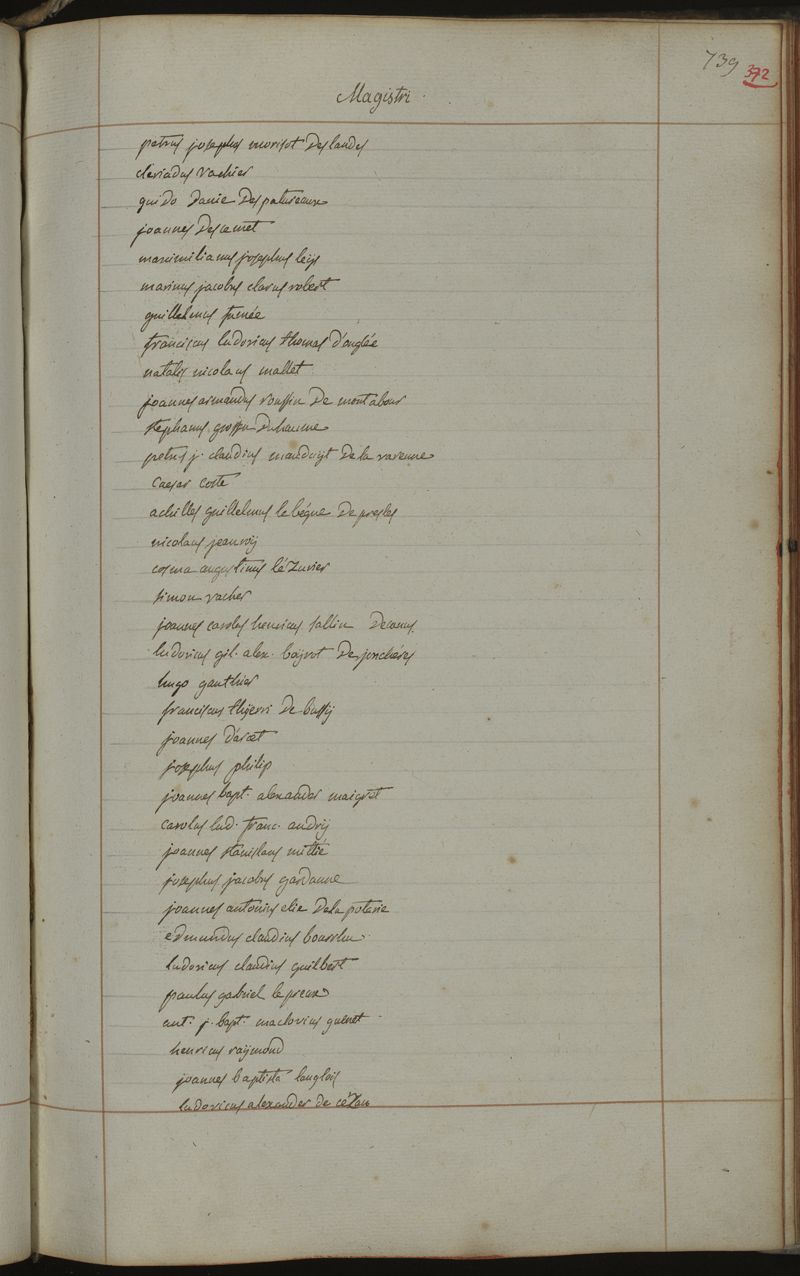 739
372
Magistri.
petrus josephus morisot Deslandes
cleriadus vachier
guido Danie Despatureaux
joannes Descemet
maximilianus josephus leys
marinus jacobus clarus robert
guillelmus
franciscus ludovicus thomas d'onglée
natalis nicolaus mallet
joannes armandus roussin De montabour
stephanus Duhaume
petrus j. claudius mauduyt De la varenne
Caesar coste
achilles guillelmus le bégue De presles
nicolaus jeanroy
cosma augustinus lézurier
simon vacher
joannes carolus henricus sallin Decanus.
ludovicus gil. alex. boyrot De joncheres
hugo gauthier
franciscus thyerri De bussy
joannes D'arcet
josephus philip
joannes bapt. alexander maigret
carolus lud. franc. andry
joannes stanislaus mittié
josephus jacobus gardanne
joannes antonius elie De la poterie
edmundus claudius bourru.
ludovicus claudius guilbert
paulus gabriel le preux
ant. j. bapt. maclovius guenet
henricus raymond
joannes baptista langlois
ludovicus alexander de cézan